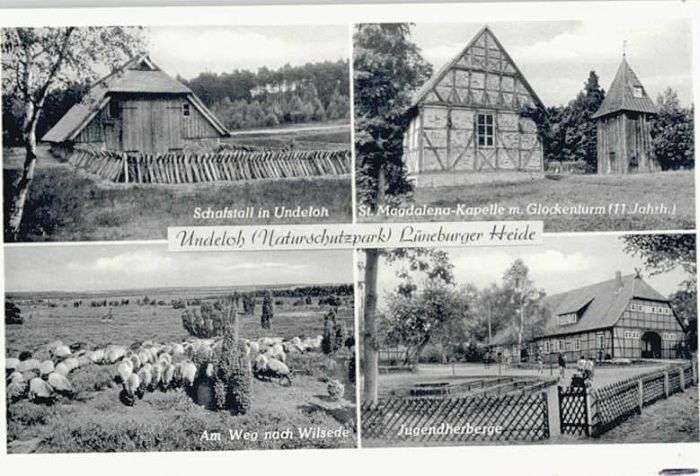 Schafstall in Undeloh
St. Magdalena-Kapelle m. Glockenturm (11. Jahrh.)
Undeloh (Naturschutzpark) Lüneburger Heide
Am Weg nach Wilsede
Jugendherberge